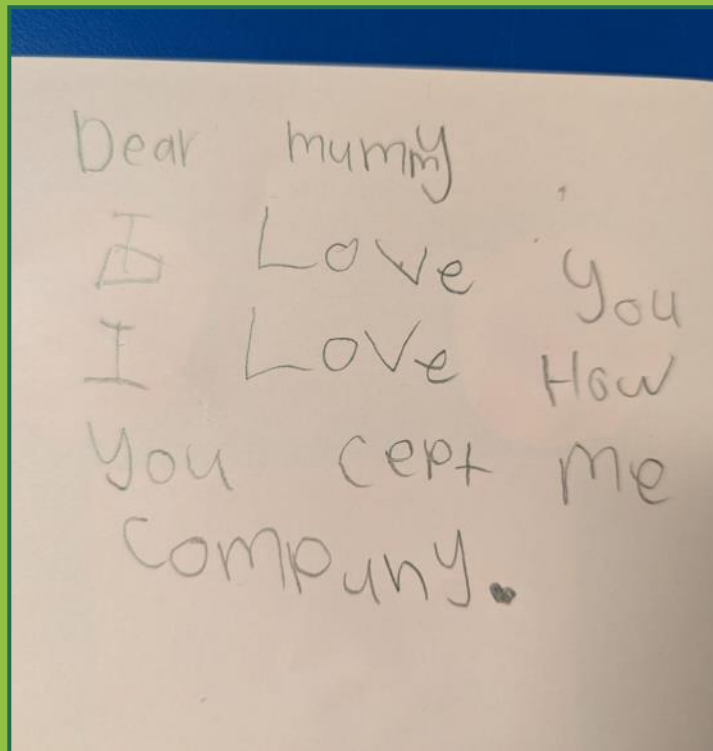 Dear mummy
I Love you
I Love How
you cept me
compuny.